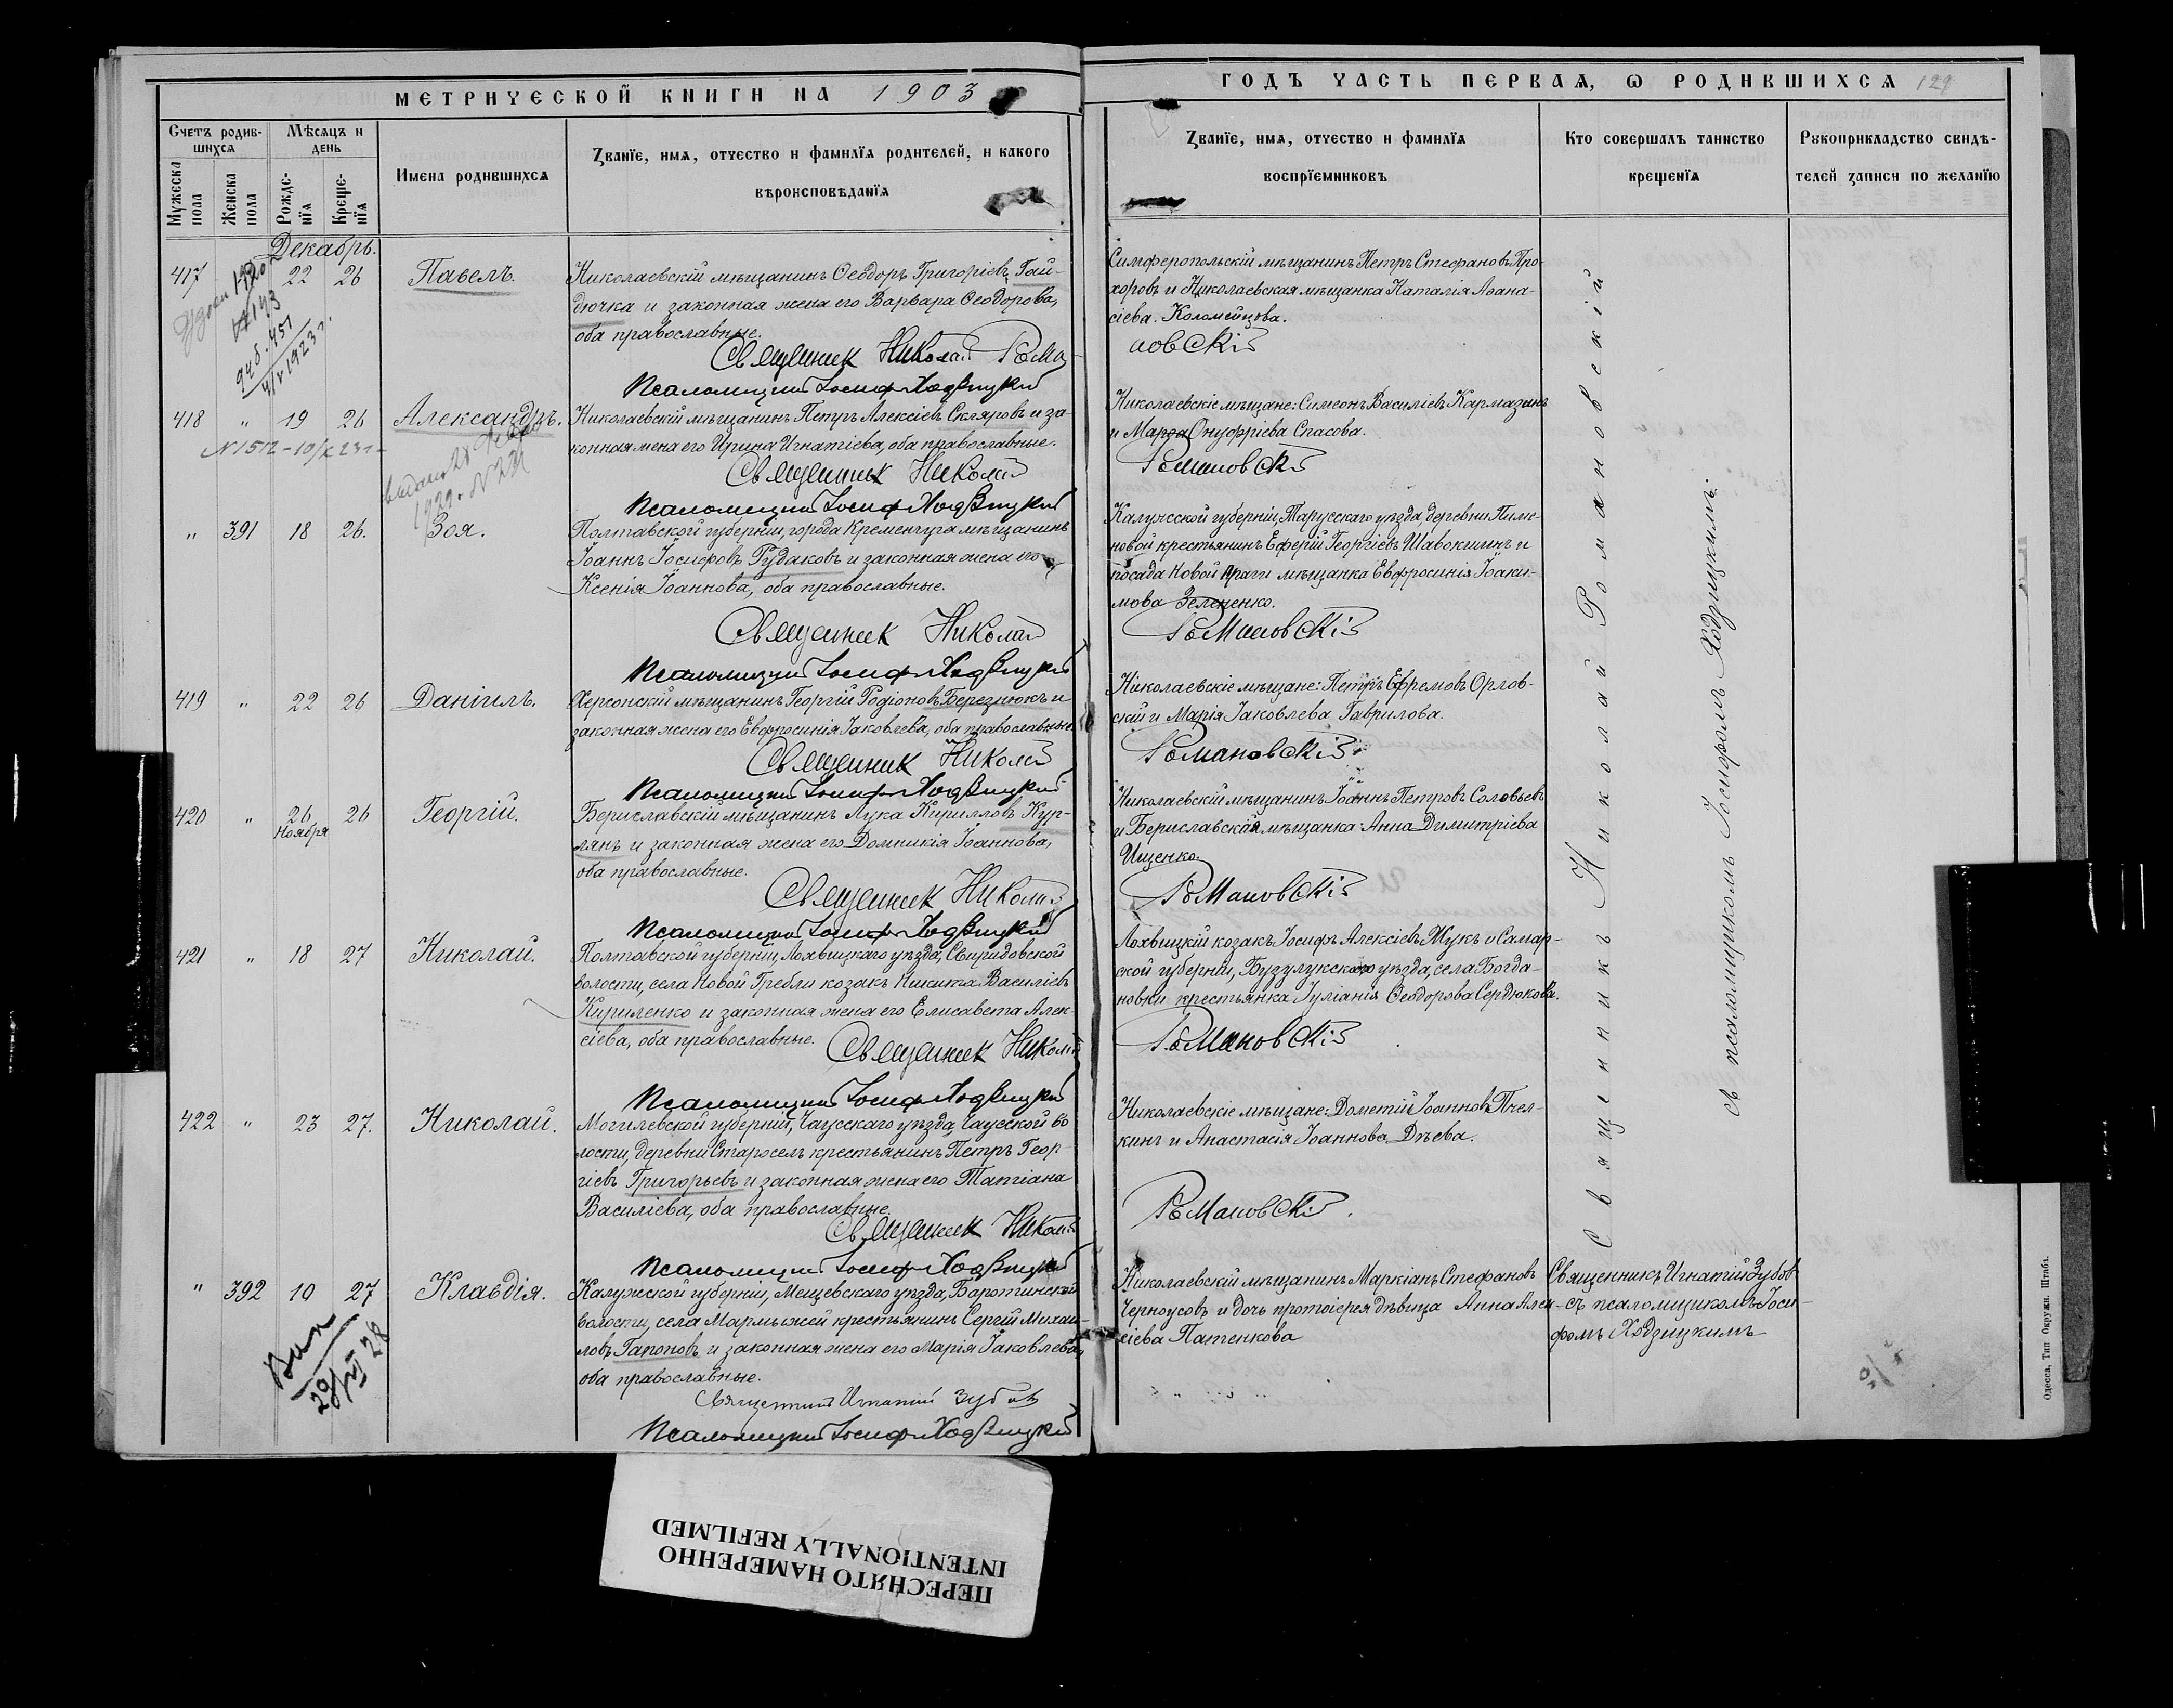 МЕТРИЧЕСКОЙ КНИГИ НА 1903
ГОДЪ ЧАСТЬ ПЕРВАЯ, Ѡ РОДИВШИХСЯ 129
Счетъ родив-
шихся
Мѣсяцъ и
день
Мужеска
пола
Женска
пола
Рожде-
нїя
Креще-
нїя
Имена родившихся
Званїе, имя, отчество и фамилїя родителей, и какого
вѣроисповѣданїя
Званїе, имя, отчество и фамилїя
воспрїемниковъ
Кто совершалъ таинство
крещенїя
Рукоприкладство свидѣ-
телей записи по желанїю
Декабрь.
417 22 26 Павелъ.
Николаевскій мѣщанинъ Ѳеодоръ Григоріевъ Гай-
дючка и законная жена его Варвара Ѳеодорова,
оба православные.
Священник Николай Рома-
Псаломщик Іосиф Ходзицкій
Симферопольскій мѣщанинъ Петръ Стефановъ Про-
хоровъ и Николаевская мѣщанка Наталія Аѳана-
сіева Коломейцова.
новскій
418 " 19 26 Александръ.
N 1512 - 10/X 23 г.
Николаевскій мѣщанинъ Петръ Алексіевъ Скляровъ и за-
конная жена его Ирина Игнатіева, оба православные.
Священник Николай
Псаломщик Іосиф Ходзицкій
Николаевскіе мѣщане: Симеонъ Василіевъ Кармазинъ
и Марѳа Онуфріева Спасова.
Романовскій
" 391 18 26. Зоя.
Полтавской губерніи, города Кременчуга мѣщанинъ
Іоаннъ Іосифовъ Рудаковъ и законная жена его
Ксенія Іоаннова, оба православные.
Священник Николай
Псаломщик Іосиф Ходзицкій
Калужской губерніи, Тарусскаго уѣзда, деревни Пиме-
новой крестьянинъ Еферій Георгіевъ Шавокшинъ и
посада Новой Праги мѣщанка Евфросинія Іоаки-
мова Зелененко.
Романовскій
419 " 22 26 Даніилъ.
Херсонскій мѣщанинъ Георгій Родіоновъ Березнюкъ и
законная жена его Евфросинія Іаковлева, оба православные.
Священник Николай
Псаломщик Іосиф Ходзицкій
Николаевскіе мѣщане: Петръ Ефремовъ Орлов-
скій и Марія Іаковлева Гаврилова.
Романовскій
420 " 26 Ноября 26 Георгій.
Бериславскій мѣщанинъ Лука Кирилловъ Кур-
лянъ и законная жена его Домникія Іоаннова,
оба православные.
Священник Николай
Псаломщик Іосиф Ходзицкій
Николаевскій мѣщанинъ Іоаннъ Петровъ Соловьевъ
и Бериславская мѣщанка Анна Димитріева
Ищенко.
Романовскій
421 " 18 27 Николай.
Полтавской губерніи, Лохвицкаго уѣзда, Свиридовской
волости, села Новой Гребли козакъ Никита Василіевъ
Кириленко и законная жена его Елисавета Алек-
сіева, оба православные.
Священник Николай
Псаломщик Іосиф Ходзицкій
Лохвицкій козакъ Іосифъ Алексіевъ Жукъ и Самар-
ской губерніи, Бузулукскаго уѣзда, села Богда-
новки крестьянка Іуліанія Ѳеодорова Сердюкова.
Романовскій
422 " 23 27. Николай.
Могилевской губерніи, Чаусскаго уѣзда, Чаусской во
лости, деревни Старосель крестьянинъ Петръ Геор
гіевъ Григорьевъ и законная жена его Татіана
Василіева, оба православные.
Священник Николай
Псаломщик Іосиф Ходзицкій
Николаевскіе мѣщане: Дометій Іоанновъ Пчел-
кинъ и Анастасія Іоаннова Дѣева.
Романовскій.
Священникъ Николай Романовскій
съ псаломщикомъ Іосифомъ Ходзицкимъ.
" 392 10 27 Клавдія.
Калужской губерніи, Мещевскаго уѣзда, Баротинской
волости, села Мармыжей крестьянинъ Сергій Михаи-
ловъ Гапоновъ и законная жена его Марія Іаковлева,
оба православные.
Священник Игнатій Зубов
Псаломщик Іосиф Ходзицкій
Николаевскій мѣщанинъ Маркіанъ Стефановъ
Черноусовъ и дочь протоіерея дѣвица Анна Алек-
сіева Патенкова
Священникъ Игнатій Зубов
съ псаломщикомъ Іоси-
фомъ Ходзицкимъ
Одесса, Тип Окружн. Штаба.
ПЕРЕСНЯТО НАМЕРЕННО
INTENTIONALLY REFILMED